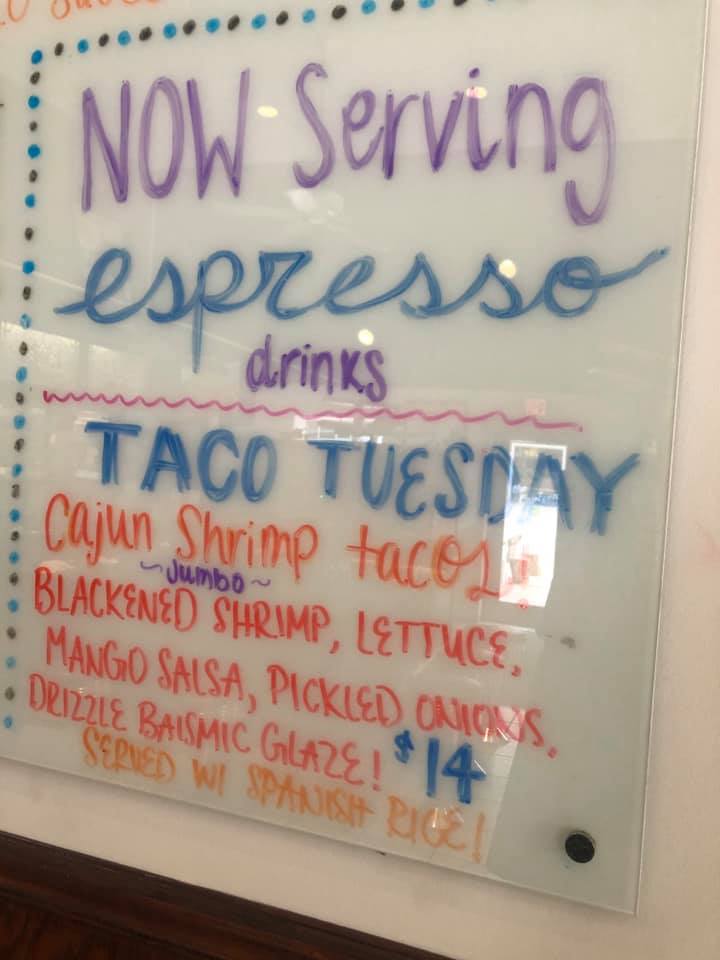 NOW Serving
espresso
drinks
TACO TUESDAY
Cajun Shrimp tacos!
~Jumbo~
BLACKENED SHRIMP, LETTUCE,
MANGO SALSA, PICKLED ONIONS,
DRIZZLE BALSMIC GLAZE! $14
SERVED W/ SPANISH RICE!